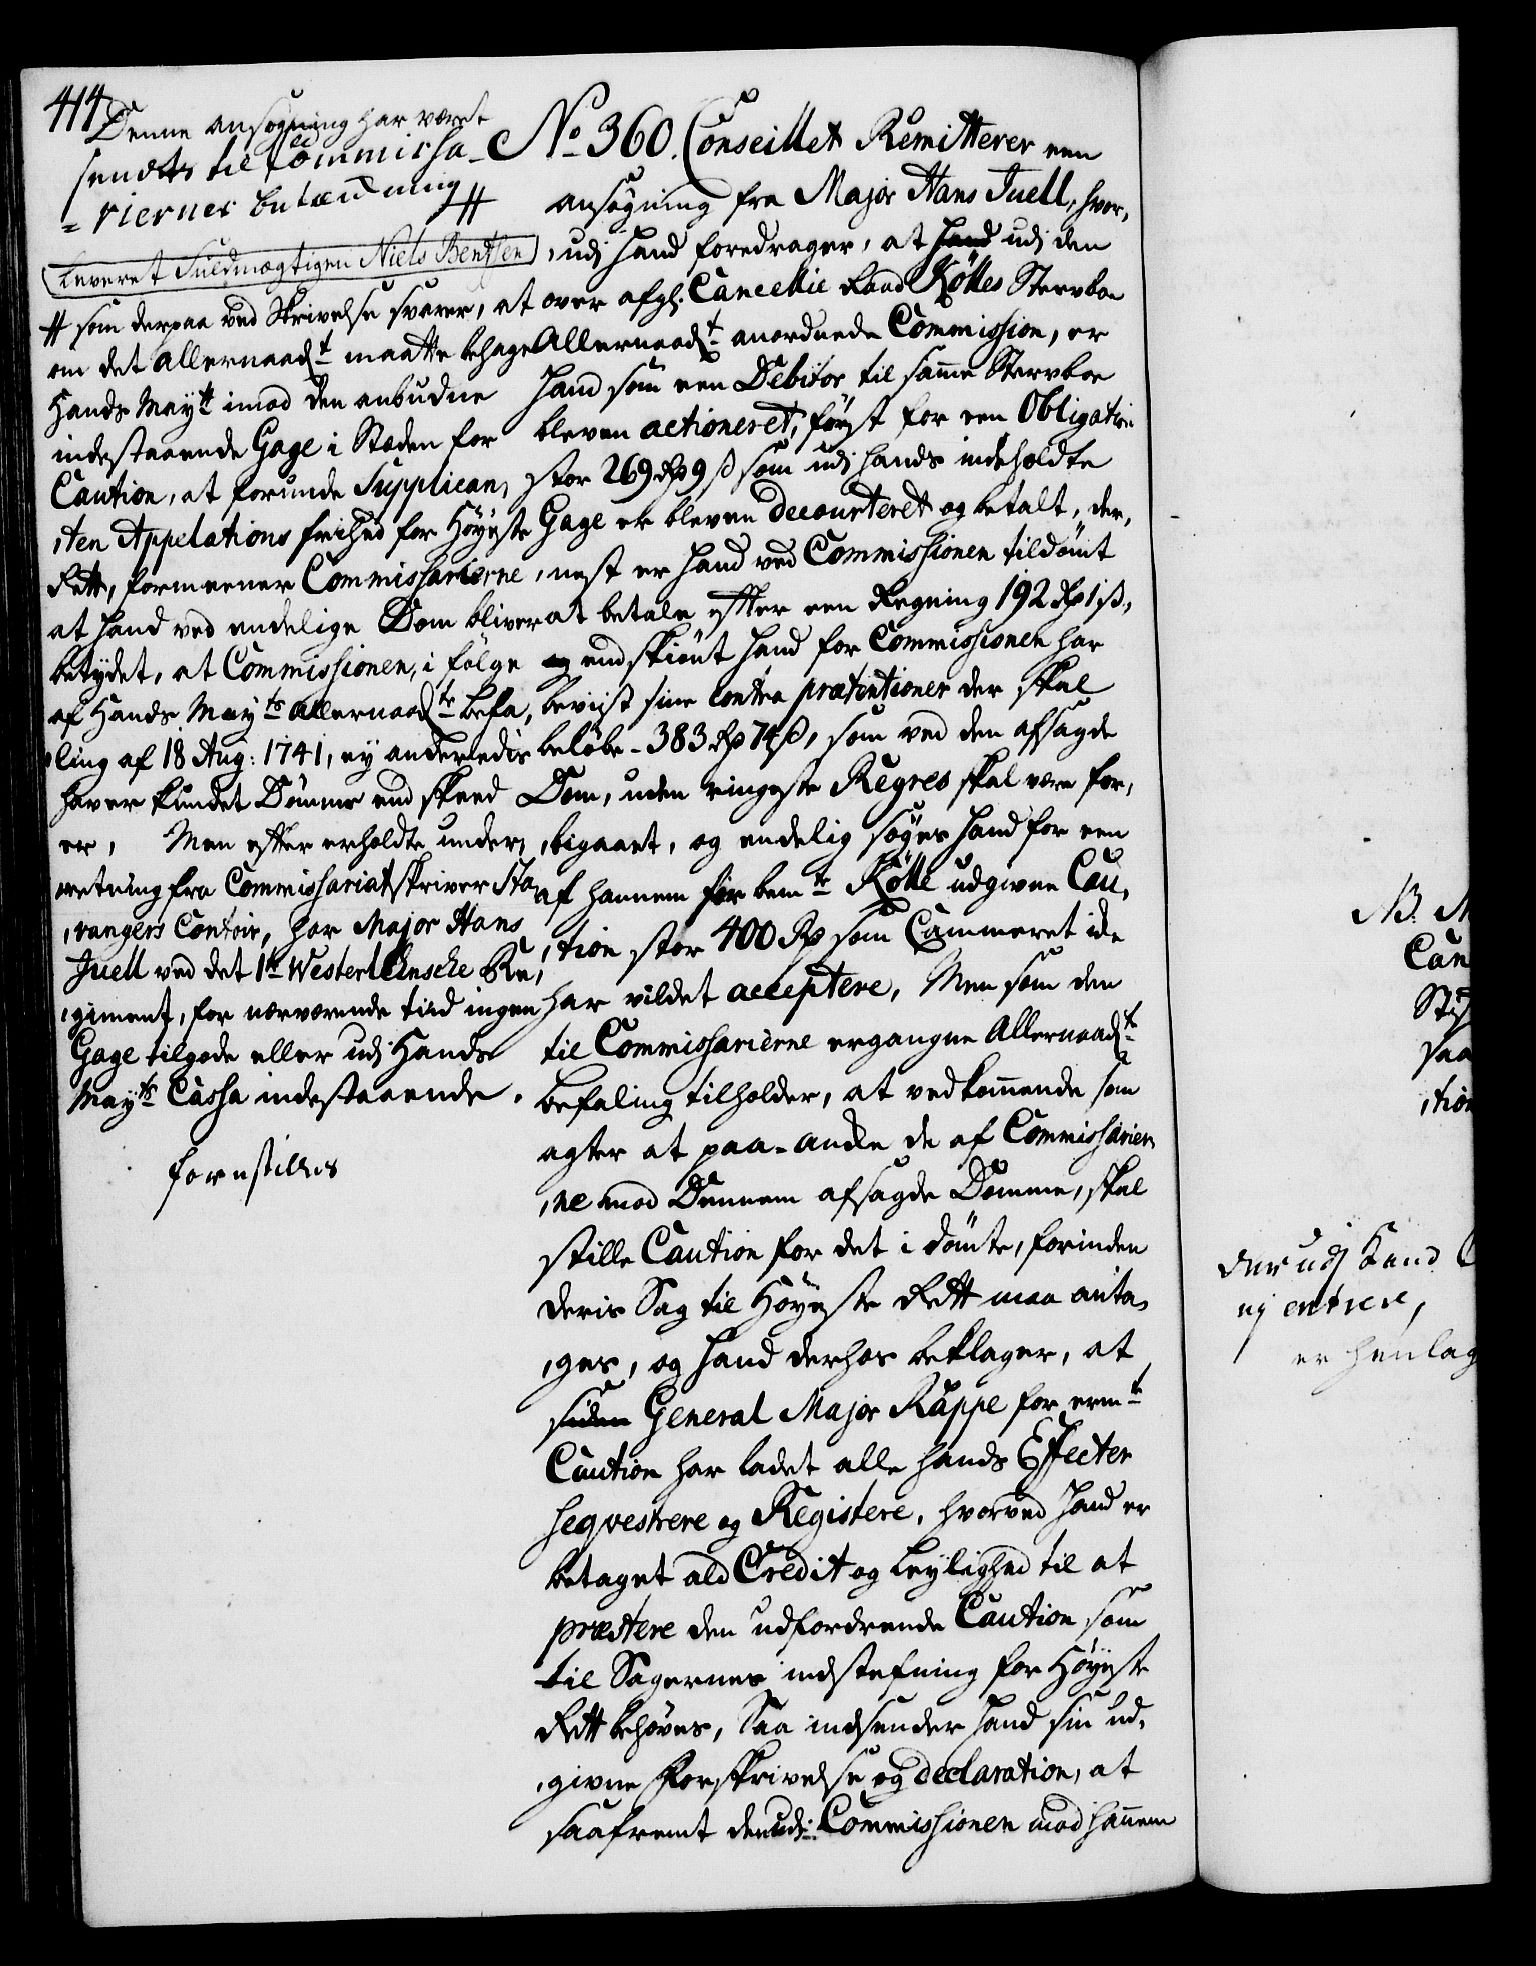 414
Denne ansøgning har været
sendts til Commissa-
=riernes betænkning #
Leveret Fuldmægtigen Niels Bentsen
# som derpaa ved Skrivelse svarer, at
om det allernaadt. maatte behage
Hands Maytt. imod den anbudne
indestaaende Gage i Steden for
Caution, at forunde Supplican,
,ten Appelations frihed for Høyeste
Rett, formeener Commissarierne,
at hand ved endelige Dom bliver
betydet, at Commissionen, i følge
af Hands Mayts. allernaadte. befa,
,ling af 18 Aug: 1741, ey anderledis
haver kundet Dømme end skeed
er, Men efter erholdte under,
,retning fra Commissariatskriver Sta,
,vangers Contoir, har Major Hans
Juell ved det 1te Westerlehnsche Re,
,giment, for nærværende tiid ingen
Gage tilgode eller udi Hands
Mayts. Cassa indestaaende.
forestilles
No. 360. Conseillet Remitterer een
ansøgning fra Major Hans Juell, hvor,
,udi hand foredrager, at hand udi den
over afgl. Cancellie Raad Kölles Stervboe
Allernaadt. anordnede Commission, er
hand som een Debitor til samme Stervboe
bleven actioneret, først for een Obligation
stor 269 Rd 9 ß som udi hands indeholdte
Gage er bleven decourteret og betalt, der,
,nest er hand ved Commissionen tildømt
at betale effter een Regning 192 Rd 1 ß,
og endskiønt hand for Commissionen har
beviist sine contra prætentioner der skal
beløbe - 383 Rd 74 ß, som ved den afsagde
Dom, uden ringeste Regres skal være for,
,bigaaet, og endelig søges hand for een
af hannem for bemte. Kölle udgivne Cau,
,tion stor 400 Rd som Cammeret icke
har vildet acceptere, Men som den
til Commissarierne ergangne Allernaadte.
befaling tilholder, at vedkommende som
agter at paa-ancke de af Commissarier,
,ne mod Dennem afsagde Domme, skal
stille Caution for det i dømte, forinden
deris Sag til Høyeste Rett maa anta,
,ges, og hand derhos beklager, at
siden General Major Rappe for ermte.
Caution har ladet alle hands Effecter
seqvestrere og Registere, hvorved hand er
betaget ald Credit og leylighed til at
præstere den udfordrende Caution som
til Sagernes indstefning for Høyeste
Rett behøves, Saa indsender hand sin ud,
,givne Forskrivelse og declaration, at
saafremt den udi Commissionen mod hannem
NB. M
Can
saa
,tion
der udj kand C
ej entrere,
er henlag